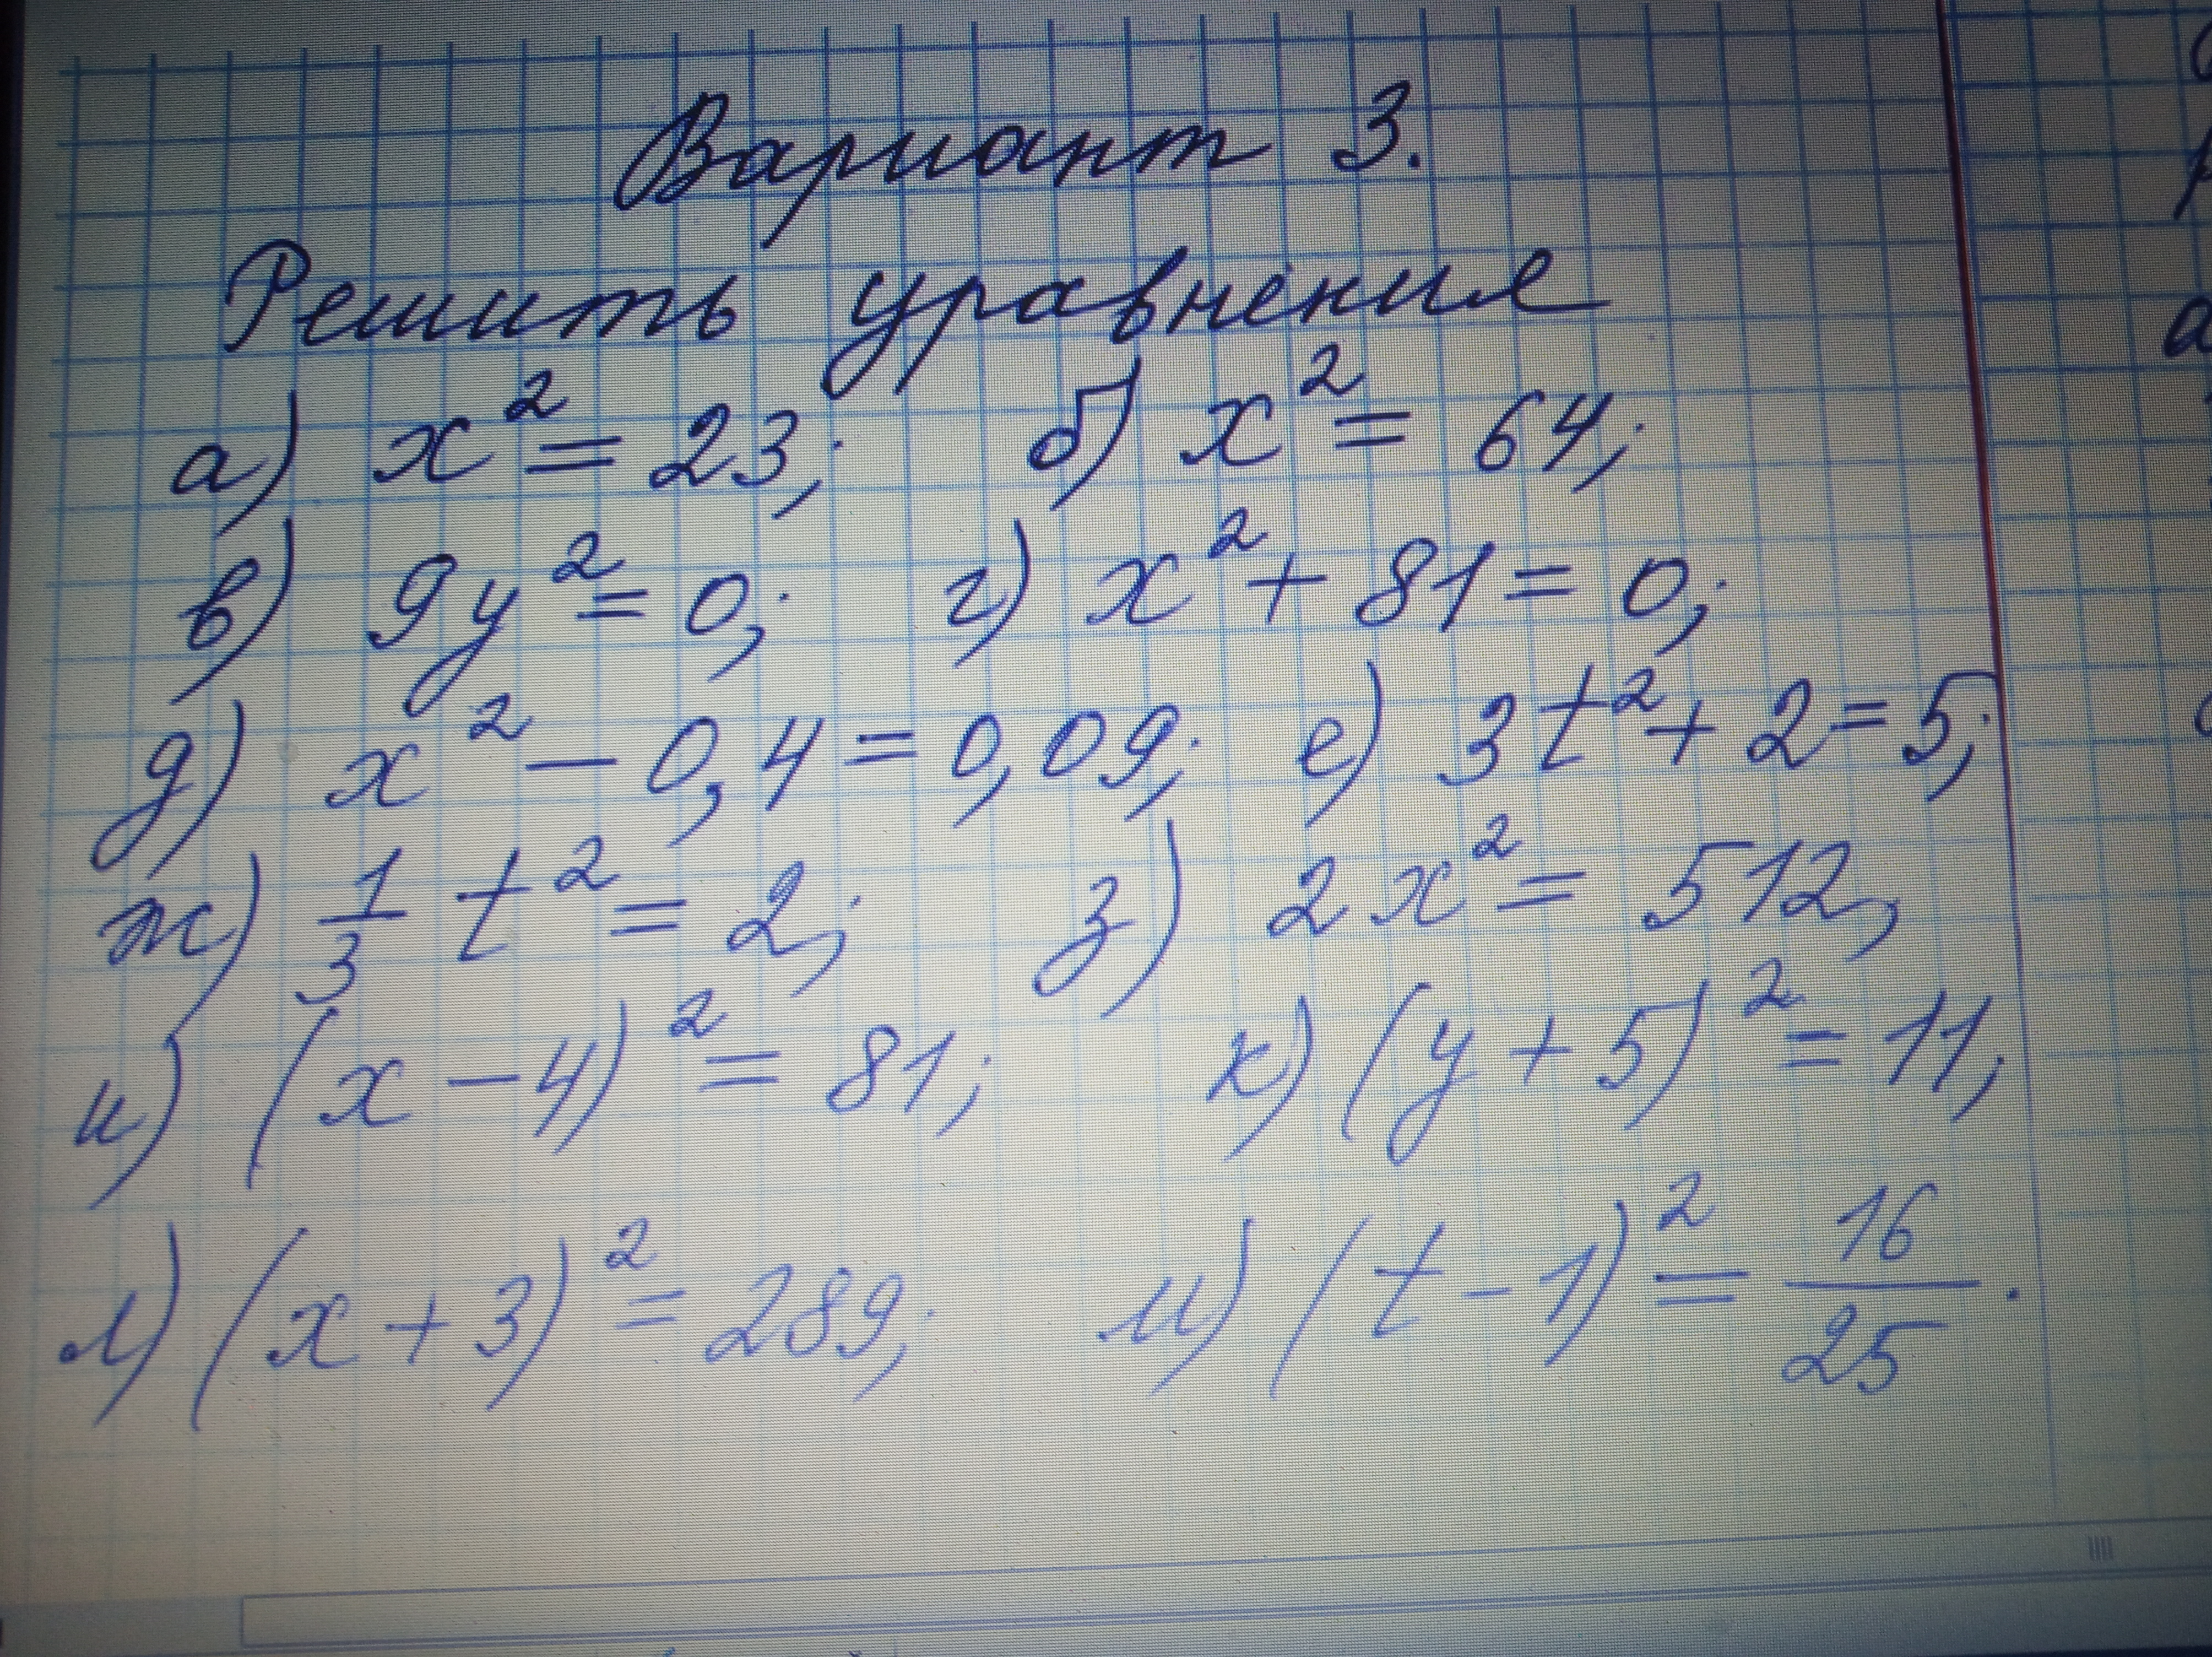 Вариант 3.
Решить уравнение
а) x² = 23; б) x² = 64;
в) 9y² = 0; г) x² + 81 = 0;
д) x² − 0,4 = 0,09; е) 3t² + 2 = 5;
ж) 1/3 t² = 2; з) 2x² = 512;
и) (x − 4)² = 81; к) (y + 5)² = 11;
л) (x + 3)² = 289; м) (t − 1)² = 16/25.